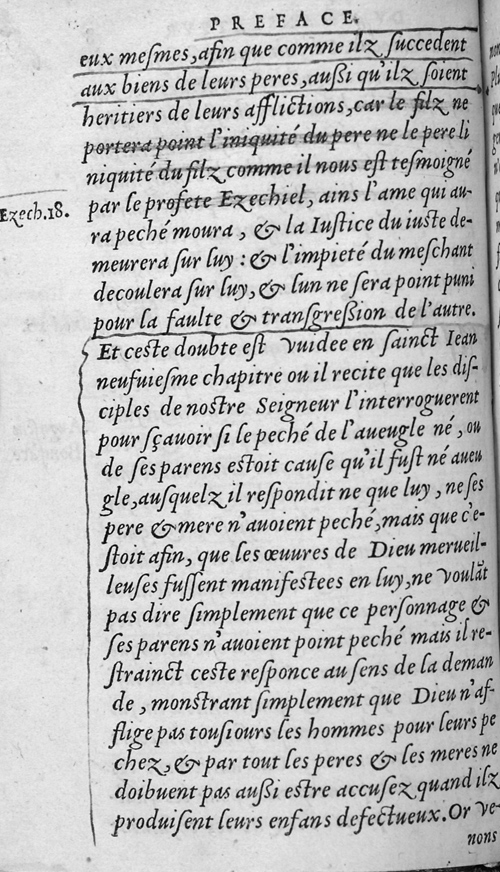 PREFACE.
eux meſmes, afin que comme ilz ſuccedent
aux biens de leurs peres, außi qu'ilz ſoient
heritiers de leurs afflictions, car le filz ne
portera point l'iniquité du pere ne le pere li
niquité du filz comme il nous eſt teſmoigné
Ezech.18.
par le profete Ezechiel, ains l'ame qui au-
ra peché moura, & la Iuſtice du iuſte de-
meurera ſur luy : & l'impieté du meſchant
decoulera ſur luy, & lun ne ſera point puni
pour la faulte & tranſgreßion de l'autre.
Et ceſte doubte eſt vuidee en ſainct Iean
neufuieſme chapitre ou il recite que les diſ-
ciples de noſtre Seigneur l'interroguerent
pour sçauoir ſi le peché de l'aueugle né, ou
de ſes parens eſtoit cauſe qu'il fuſt né aueu
gle, auſquelz il reſpondit ne que luy, ne ſes
pere & mere n'auoient peché, mais que c'e-
ſtoit afin, que les œuures de Dieu merueil-
leuſes fuſſent manifeſtees en luy, ne voulãt
pas dire ſimplement que ce perſonnage &
ſes parens n'auoient point peché mais il re-
ſtrainct ceſte reſponce au ſens de la deman
de, monſtrant ſimplement que Dieu n'af-
flige pas touſiours les hommes pour leurs pe
chez, & par tout les peres & les meres ne
doibuent pas außi eſtre accuſez quand ilz
produiſent leurs enfans defectueux. Or ve-
nons